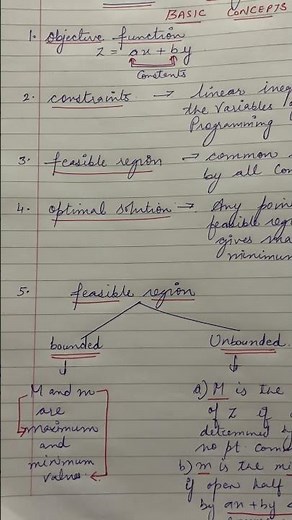 BASIC CONCEPTS
1. Objective function
Z = ax + by
Constents
2. constraints → linear ineq
the Variables
Programming
3. feasible region → common
by all Con
4. optimal solution → Any poin
feasible reg
gives
minimum
5. feasible region
bounded
Unbounded
M and m
are
maximum
and
minimum
value
a) M is the
of Z if
determined
no pt com
b) m is the mi
if open half
by ax + by